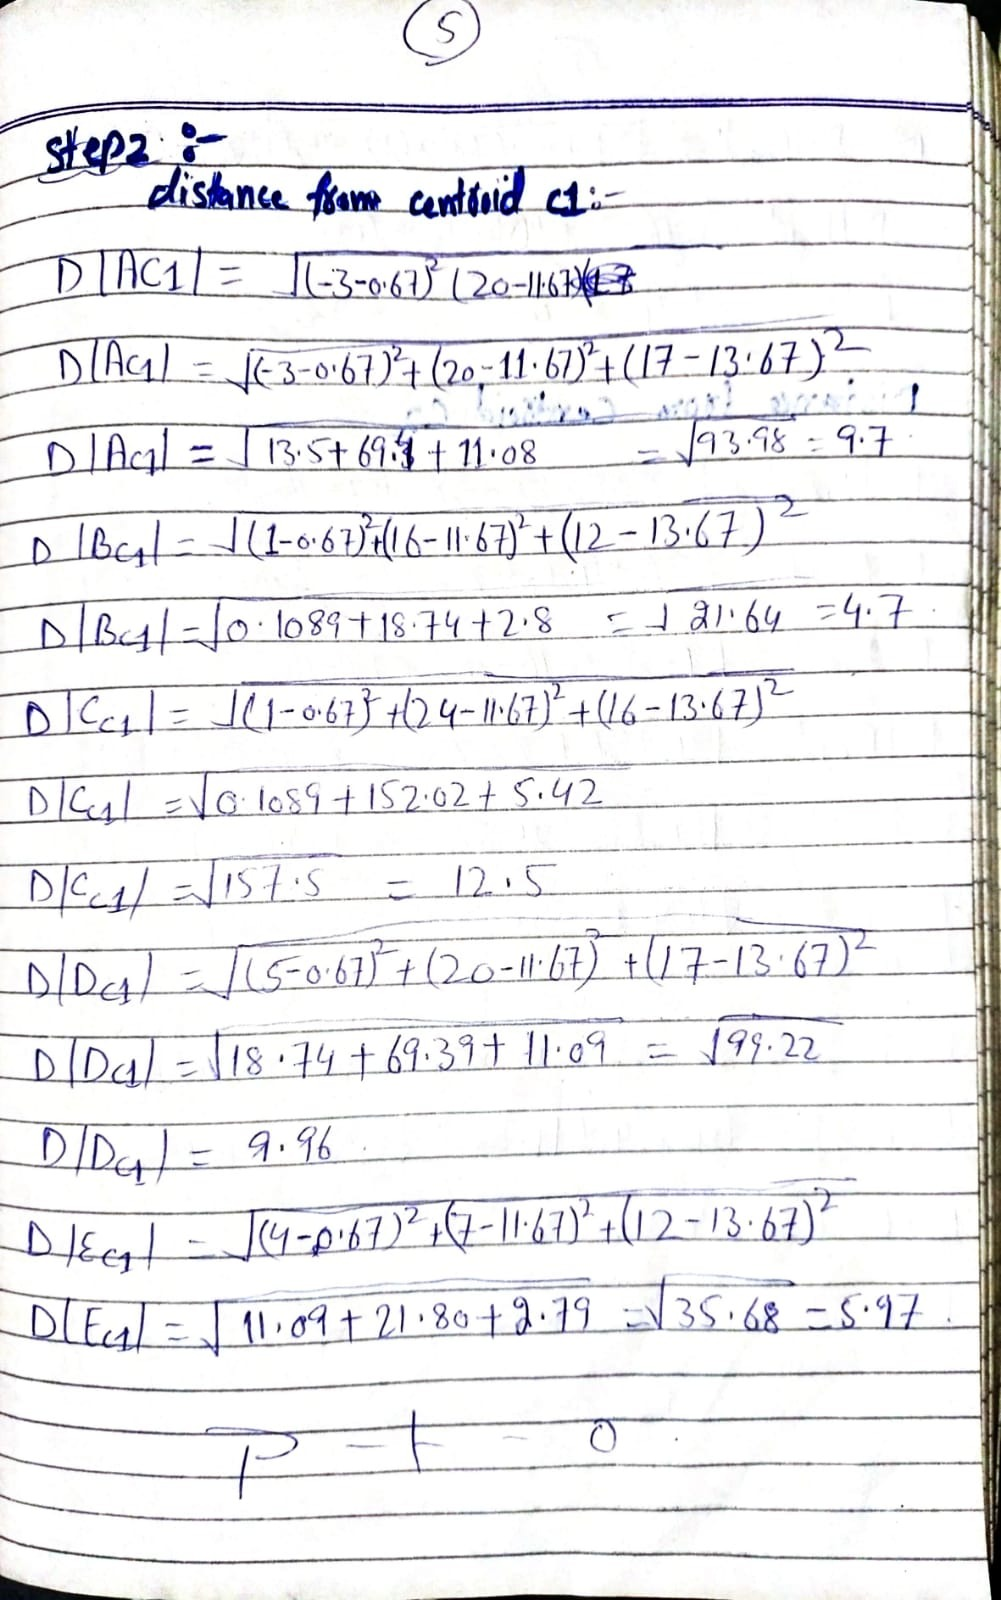 5
Step2 :-
distance from centroid c1:-
D|AC1| = √(-3-0.67)² (20-11.67)
D|AC1| = √(-3-0.67)²+(20-11.67)²+(17-13.67)²
D|AC1| = √13.5+69.4+11.08 = √93.98 = 9.7
D|BC1| = √(1-0.67)²+(16-11.67)²+(12-13.67)²
D|BC1| = √0.1089+18.74+2.8 = √21.64 = 4.7
D|CC1| = √(1-0.67)²+(24-11.67)²+(16-13.67)²
D|CC1| = √0.1089+152.02+5.42
D|CC1| = √157.5 = 12.5
D|DC1| = √(5-0.67)²+(20-11.67)²+(17-13.67)²
D|DC1| = √18.74+69.39+11.09 = √99.22
D|DC1| = 9.96
D|EC1| = √(4-0.67)²+(7-11.67)²+(12-13.67)²
D|EC1| = √11.09+21.80+2.79 = √35.68 = 5.97
P - t - o